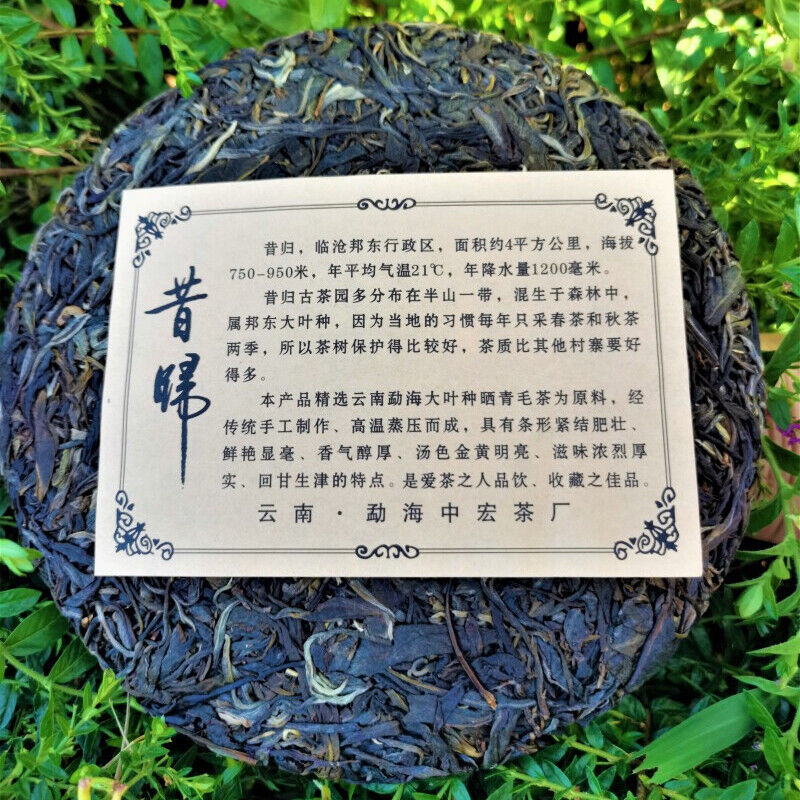 昔歸
昔归，临沧邦东行政区，面积约4平方公里，海拔
750-950米，年平均气温21℃，年降水量1200毫米。
昔归古茶园多分布在半山一带，混生于森林中，
属邦东大叶种，因为当地的习惯每年只采春茶和秋茶
两季，所以茶树保护得比较好，茶质比其他村寨要好
得多。
本产品精选云南勐海大叶种晒青毛茶为原料，经
传统手工制作、高温蒸压而成，具有条形紧结肥壮、
鲜艳显毫、香气醇厚、汤色金黄明亮、滋味浓烈厚
实、回甘生津的特点。是爱茶之人品饮、收藏之佳品。
云南·勐海中宏茶厂